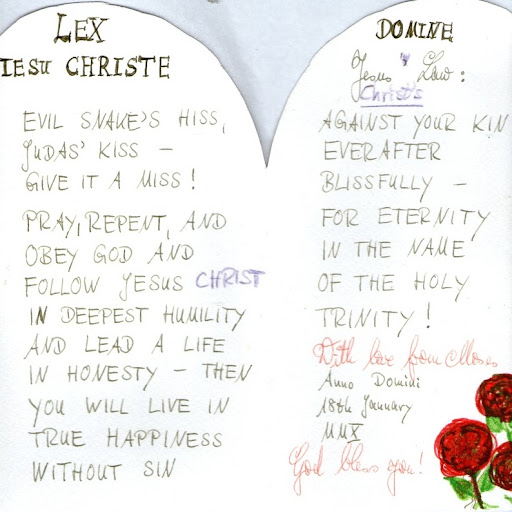 LEX
IESU CHRISTE
EVIL SNAKE'S HISS,
JUDAS' KISS –
GIVE IT A MISS!
PRAY, REPENT, AND
OBEY GOD AND
FOLLOW JESUS CHRIST
IN DEEPEST HUMILITY
AND LEAD A LIFE
IN HONESTY – THEN
YOU WILL LIVE IN
TRUE HAPPINESS
WITHOUT SIN
DOMINE
Jesus' Law:
Christ's
AGAINST YOUR KIN
EVERAFTER
BLISSFULLY –
FOR ETERNITY
IN THE NAME
OF THE HOLY
TRINITY!
With love from Moses
Anno Domini
18th January
MMX
God bless you!